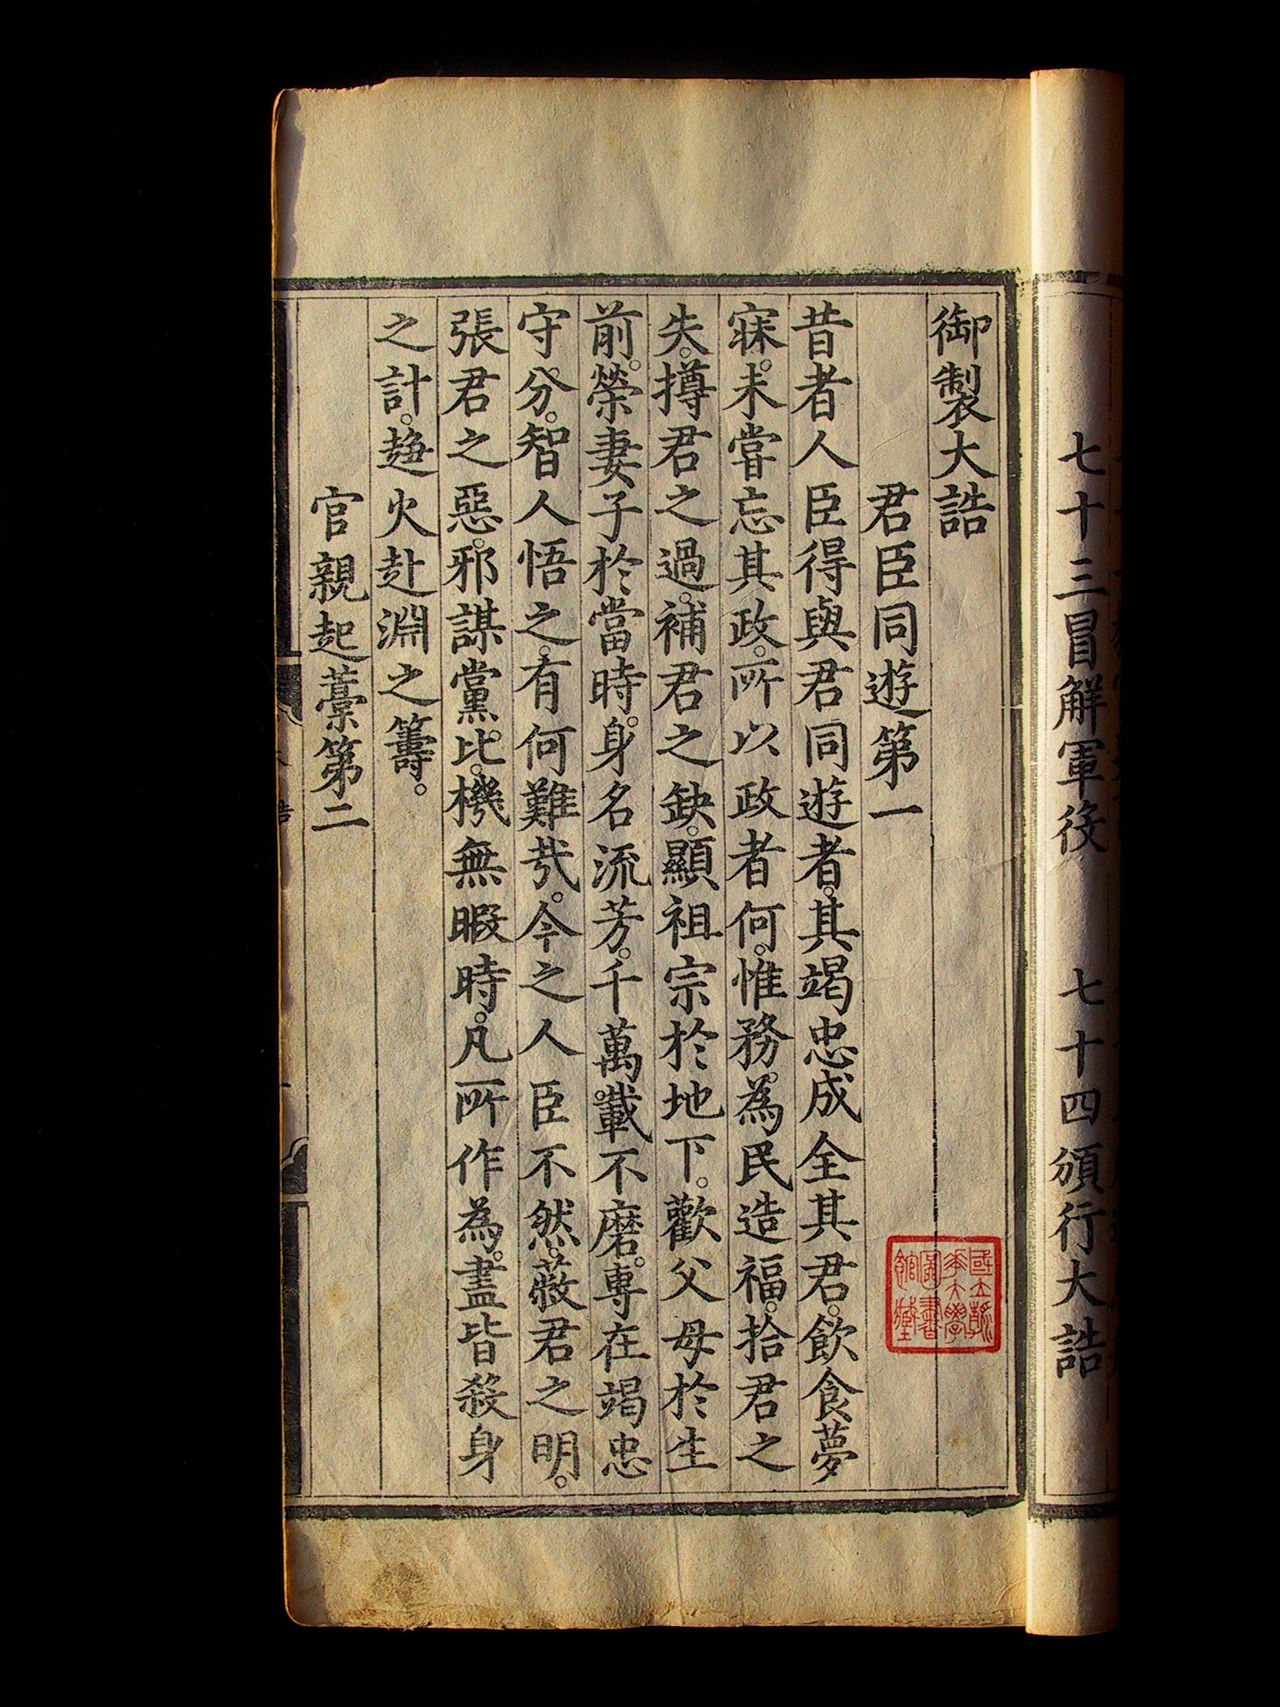 七十三冒解軍役　七十四頒行大誥
御製大誥
君臣同遊第一
昔者人臣得與君同遊者。其竭忠成全其君。飲食夢
寐。未嘗忘其政。所以政者何。惟務。為民造福。拾君之
失。撙君之過。補君之缺。顯祖宗於地下。歡父母於生
前。榮妻子於當時。身名流芳。千萬載不磨。專在竭忠
守分。智人悟之。有何難哉。今之人臣不然。蔽君之明。
張君之惡。邪謀黨比。機無暇時。凡所作為。盡皆殺身
之計。趨火赴淵之籌。
官親起藁第二
國立清華大學圖書館藏